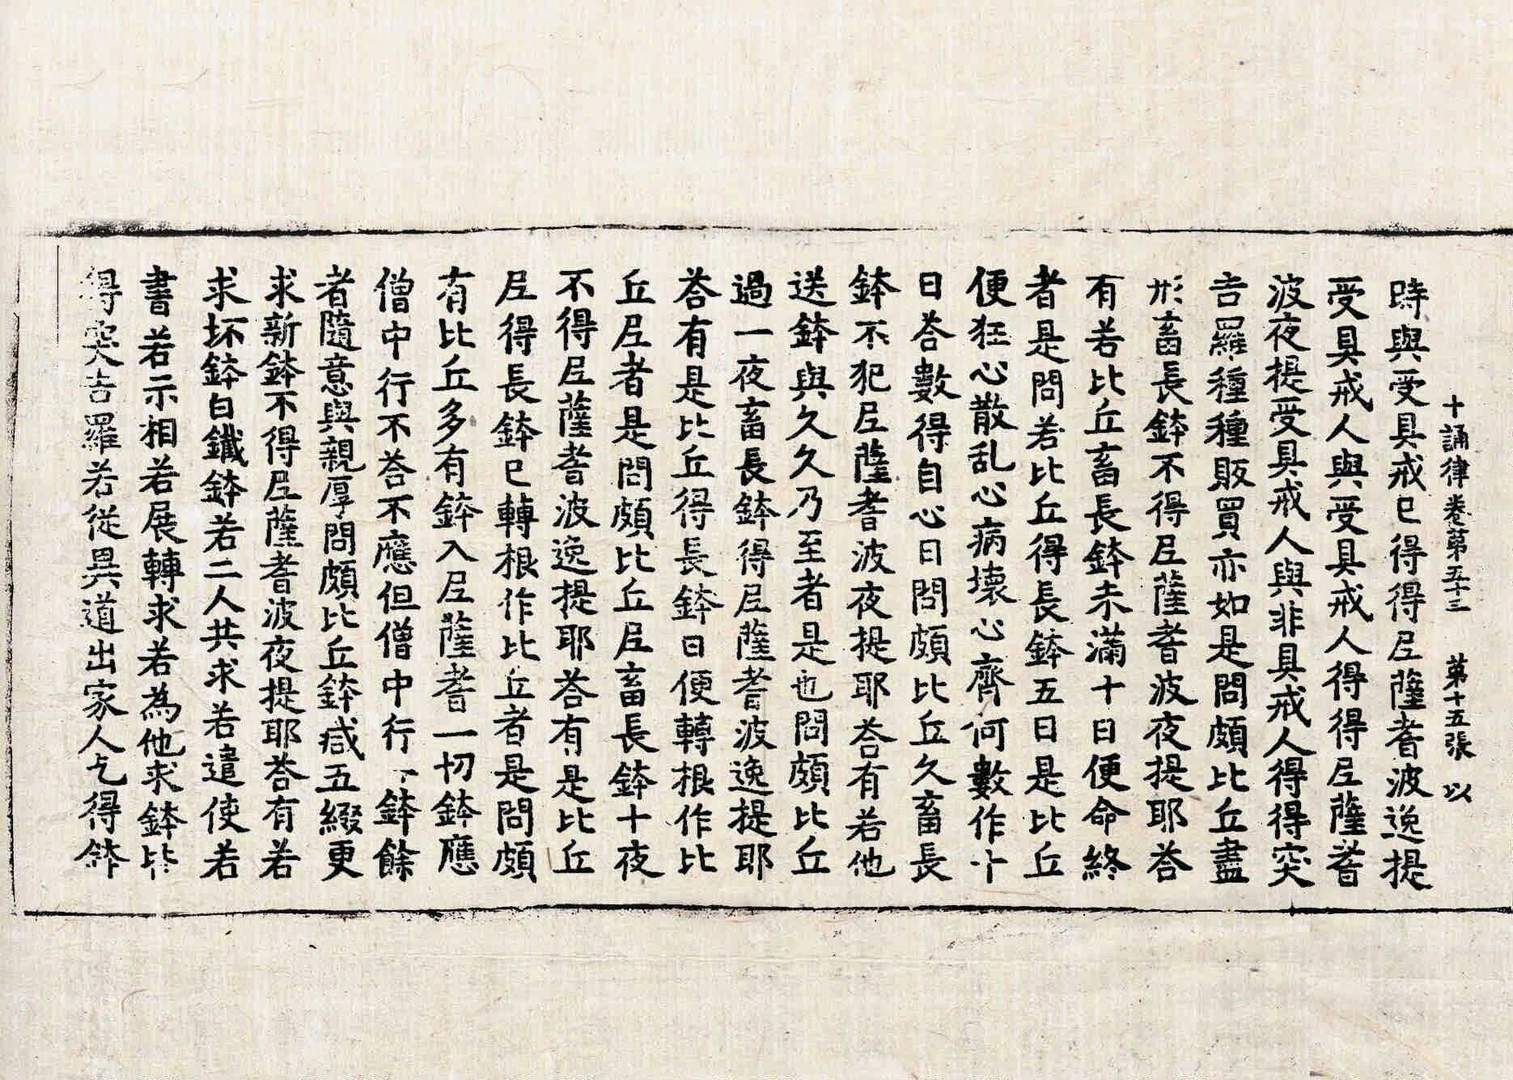 十誦律卷第五十三　第十五張　以
時與受具戒已得得尼薩耆波逸提
受具戒人與受具戒人得得尼薩耆
波夜提受具戒人與非具戒人得得突
吉羅種種販買亦如是問頗比丘盡
形畜長鉢不得尼薩耆波夜提耶荅
有若比丘畜長鉢未滿十日便命終
者是問若比丘得長鉢五日是比丘
便狂心散乱心病壞心齊何數作十
日荅數得自心日問頗比丘久畜長
鉢不犯尼薩耆波夜提耶荅有若他
送鉢與久久乃至者是也問頗比丘
過一夜畜長鉢得尼薩耆波逸提耶
荅有是比丘得長鉢日便轉根作比
丘尼者是問頗比丘尼畜長鉢十夜
不得尼薩耆波逸提耶荅有是比丘
尼得長鉢已轉根作比丘者是問頗
有比丘多有鉢入尼薩耆一切鉢應
僧中行不荅不應但僧中行一鉢餘
者隨意與親厚問頗比丘鉢減五綴更
求新鉢不得尼薩耆波夜提耶荅有若
求坏鉢白鐵鉢若二人共求若遣使若
書若示相若展轉求若為他求鉢比
得突吉羅若從異道出家人乞得鉢